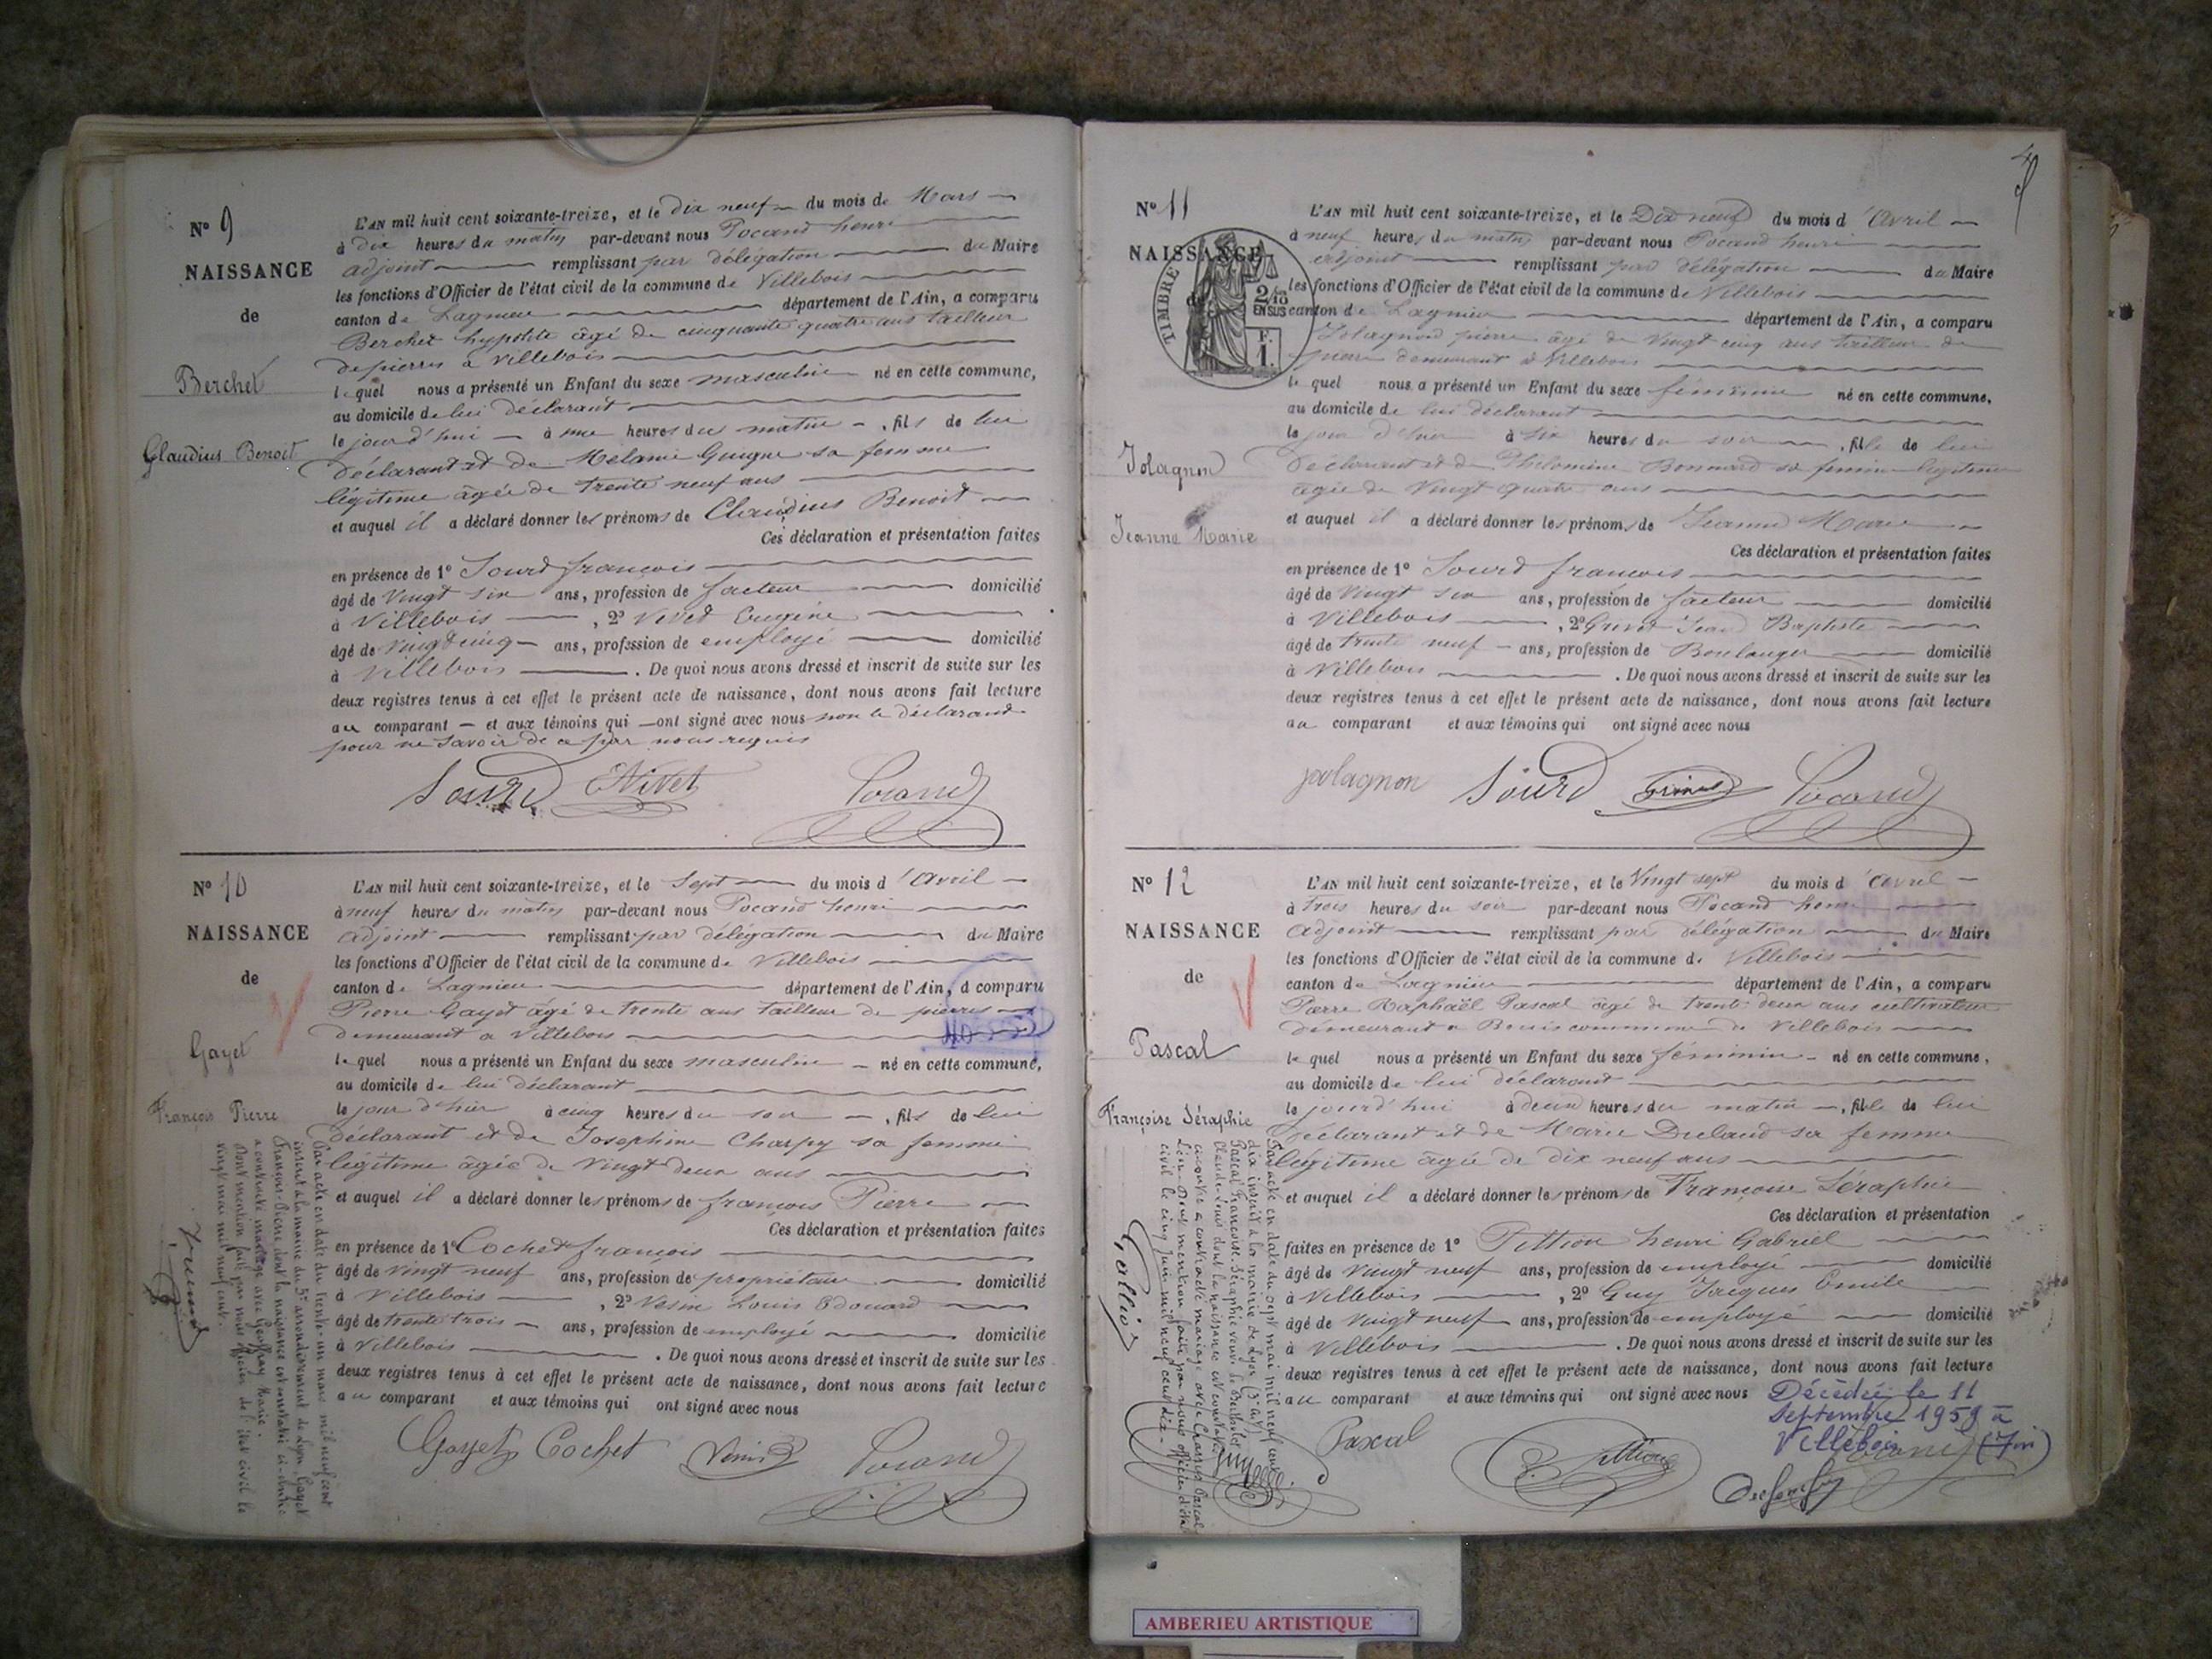 N° 9
NAISSANCE
de
Berchet
Claudius Benoit
L'AN mil huit cent soixante-treize, et le dix neuf du mois de Mars
à dix heures du matin par-devant nous Pocand henri
adjoint remplissant par délégation du Maire
les fonctions d'Officier de l'état civil de la commune de Villebois
canton de Lagnieu département de l'Ain, a comparu
Berchet hypolite âgé de cinquante quatre ans tailleur
de pierres à Villebois
lequel nous a présenté un Enfant du sexe masculin né en cette commune,
au domicile de lui déclarant
le jour d'hui à une heures du matin, fils de lui
déclarant et de Mélanie Guigue sa femme
légitime âgée de trente neuf ans
et auquel il a déclaré donner les prénoms de Claudius Benoit
Ces déclaration et présentation faites
en présence de 1° Sourd françois
âgé de Vingt six ans, profession de facteur domicilié
à Villebois, 2° Vivet Eugène
âgé de Vingt cinq ans, profession de employé domicilié
à Villebois. De quoi nous avons dressé et inscrit de suite sur les
deux registres tenus à cet effet le présent acte de naissance, dont nous avons fait lecture
au comparant et aux témoins qui ont signé avec nous non le déclarant
pour ne savoir de ce par nous requis
Sourd EVivet Pocand
N° 10
NAISSANCE
de
Gayet
François Pierre
L'AN mil huit cent soixante-treize, et le Sept du mois d'Avril
à neuf heures du matin par-devant nous Pocand henri
adjoint remplissant par délégation du Maire
les fonctions d'Officier de l'état civil de la commune de Villebois
canton de Lagnieu département de l'Ain, a comparu
Pierre Gayet âgé de trente ans tailleur de pierres
demeurant a Villebois
lequel nous a présenté un Enfant du sexe masculin né en cette commune,
au domicile de lui déclarant
le jour d'hier à cinq heures du soir, fils de lui
déclarant et de Josephine Charpy sa femme
légitime âgée de Vingt deux ans
et auquel il a déclaré donner les prénoms de françois Pierre
Ces déclaration et présentation faites
en présence de 1° Cochet françois
âgé de Vingt neuf ans, profession de propriétaire domicilié
à Villebois, 2° Louis Edouard
âgé de trente trois ans, profession de employé domicilié
à Villebois. De quoi nous avons dressé et inscrit de suite sur les
deux registres tenus à cet effet le présent acte de naissance, dont nous avons fait lecture
au comparant et aux témoins qui ont signé avec nous
Gayet Cochet Pocand
Par acte en date du trente-un mars mil neuf cent
inscrit à la mairie du 3e arrondissement de Lyon Gayet
François-Pierre dont la naissance est constatée ci-contre
a contracté mariage avec Geoffray Marie.
Dont mention faite par nous officier de l'état civil le
vingt mai mil neuf cent.
N° 11
NAISSANCE
de
TIMBRE
2/10
EN SUS
F.
1.
Jolagnon
Jeanne Marie
L'AN mil huit cent soixante-treize, et le Dix neuf du mois d'Avril
à neuf heures du matin par-devant nous Pocand henri
adjoint remplissant par délégation du Maire
les fonctions d'Officier de l'état civil de la commune de Villebois
canton de Lagnieu département de l'Ain, a comparu
Jolagnon pierre âgé de Vingt cinq ans tailleur de
pierre demeurant à Villebois
lequel nous a présenté un Enfant du sexe féminin né en cette commune,
au domicile de lui déclarant
le jour d'hier à six heures du soir, fille de lui
déclarant et de Philomine Bonnard sa femme légitime
âgée de Vingt quatre ans
et auquel il a déclaré donner les prénoms de Jeanne Marie
Ces déclaration et présentation faites
en présence de 1° Sourd francois
âgé de Vingt six ans, profession de facteur domicilié
à Villebois, 2° Jean Baptiste
âgé de trente neuf ans, profession de Boulanger domicilié
à Villebois. De quoi nous avons dressé et inscrit de suite sur les
deux registres tenus à cet effet le présent acte de naissance, dont nous avons fait lecture
au comparant et aux témoins qui ont signé avec nous
jolagnon Sourd Pocand
N° 12
NAISSANCE
de
Pascal
Françoise Séraphie
L'AN mil huit cent soixante-treize, et le Vingt sept du mois d'Avril
à trois heures du soir par-devant nous Pocand henri
adjoint remplissant par délégation du Maire
les fonctions d'Officier de l'état civil de la commune de Villebois
canton de Lagnieu département de l'Ain, a comparu
Pierre Raphaël Pascal âgé de trente deux ans cultivateur
demeurant a Bouis commune de Villebois
lequel nous a présenté un Enfant du sexe féminin né en cette commune,
au domicile de lui déclarant
le jourd'hui à deux heures du matin, fille de lui
déclarant et de Marie sa femme
légitime âgée de dix neuf ans
et auquel il a déclaré donner les prénoms de Françoise Séraphie
Ces déclaration et présentation
faites en présence de 1° Pittion henri Gabriel
âgé de Vingt neuf ans, profession de employé domicilié
à Villebois, 2° Guy Jacques Emile
âgé de Vingt neuf ans, profession de employé domicilié
à Villebois. De quoi nous avons dressé et inscrit de suite sur les
deux registres tenus à cet effet le présent acte de naissance, dont nous avons fait lecture
au comparant et aux témoins qui ont signé avec nous
Décédée le 11
Septembre 1959 à
Villebois (Ain)
Pascal Pittion Guy
Par acte en date du sept mai mil neuf cent
dix inscrit à la mairie de Lyon (3e arr)
Pascal Françoise Séraphie veuve de
Claude Louis dont la naissance est constatée
ci-contre a contracté mariage avec Charvet Pascal
Dont mention faite par nous officier d'état
civil le cinq juin mil neuf cent dix.
AMBERIEU ARTISTIQUE